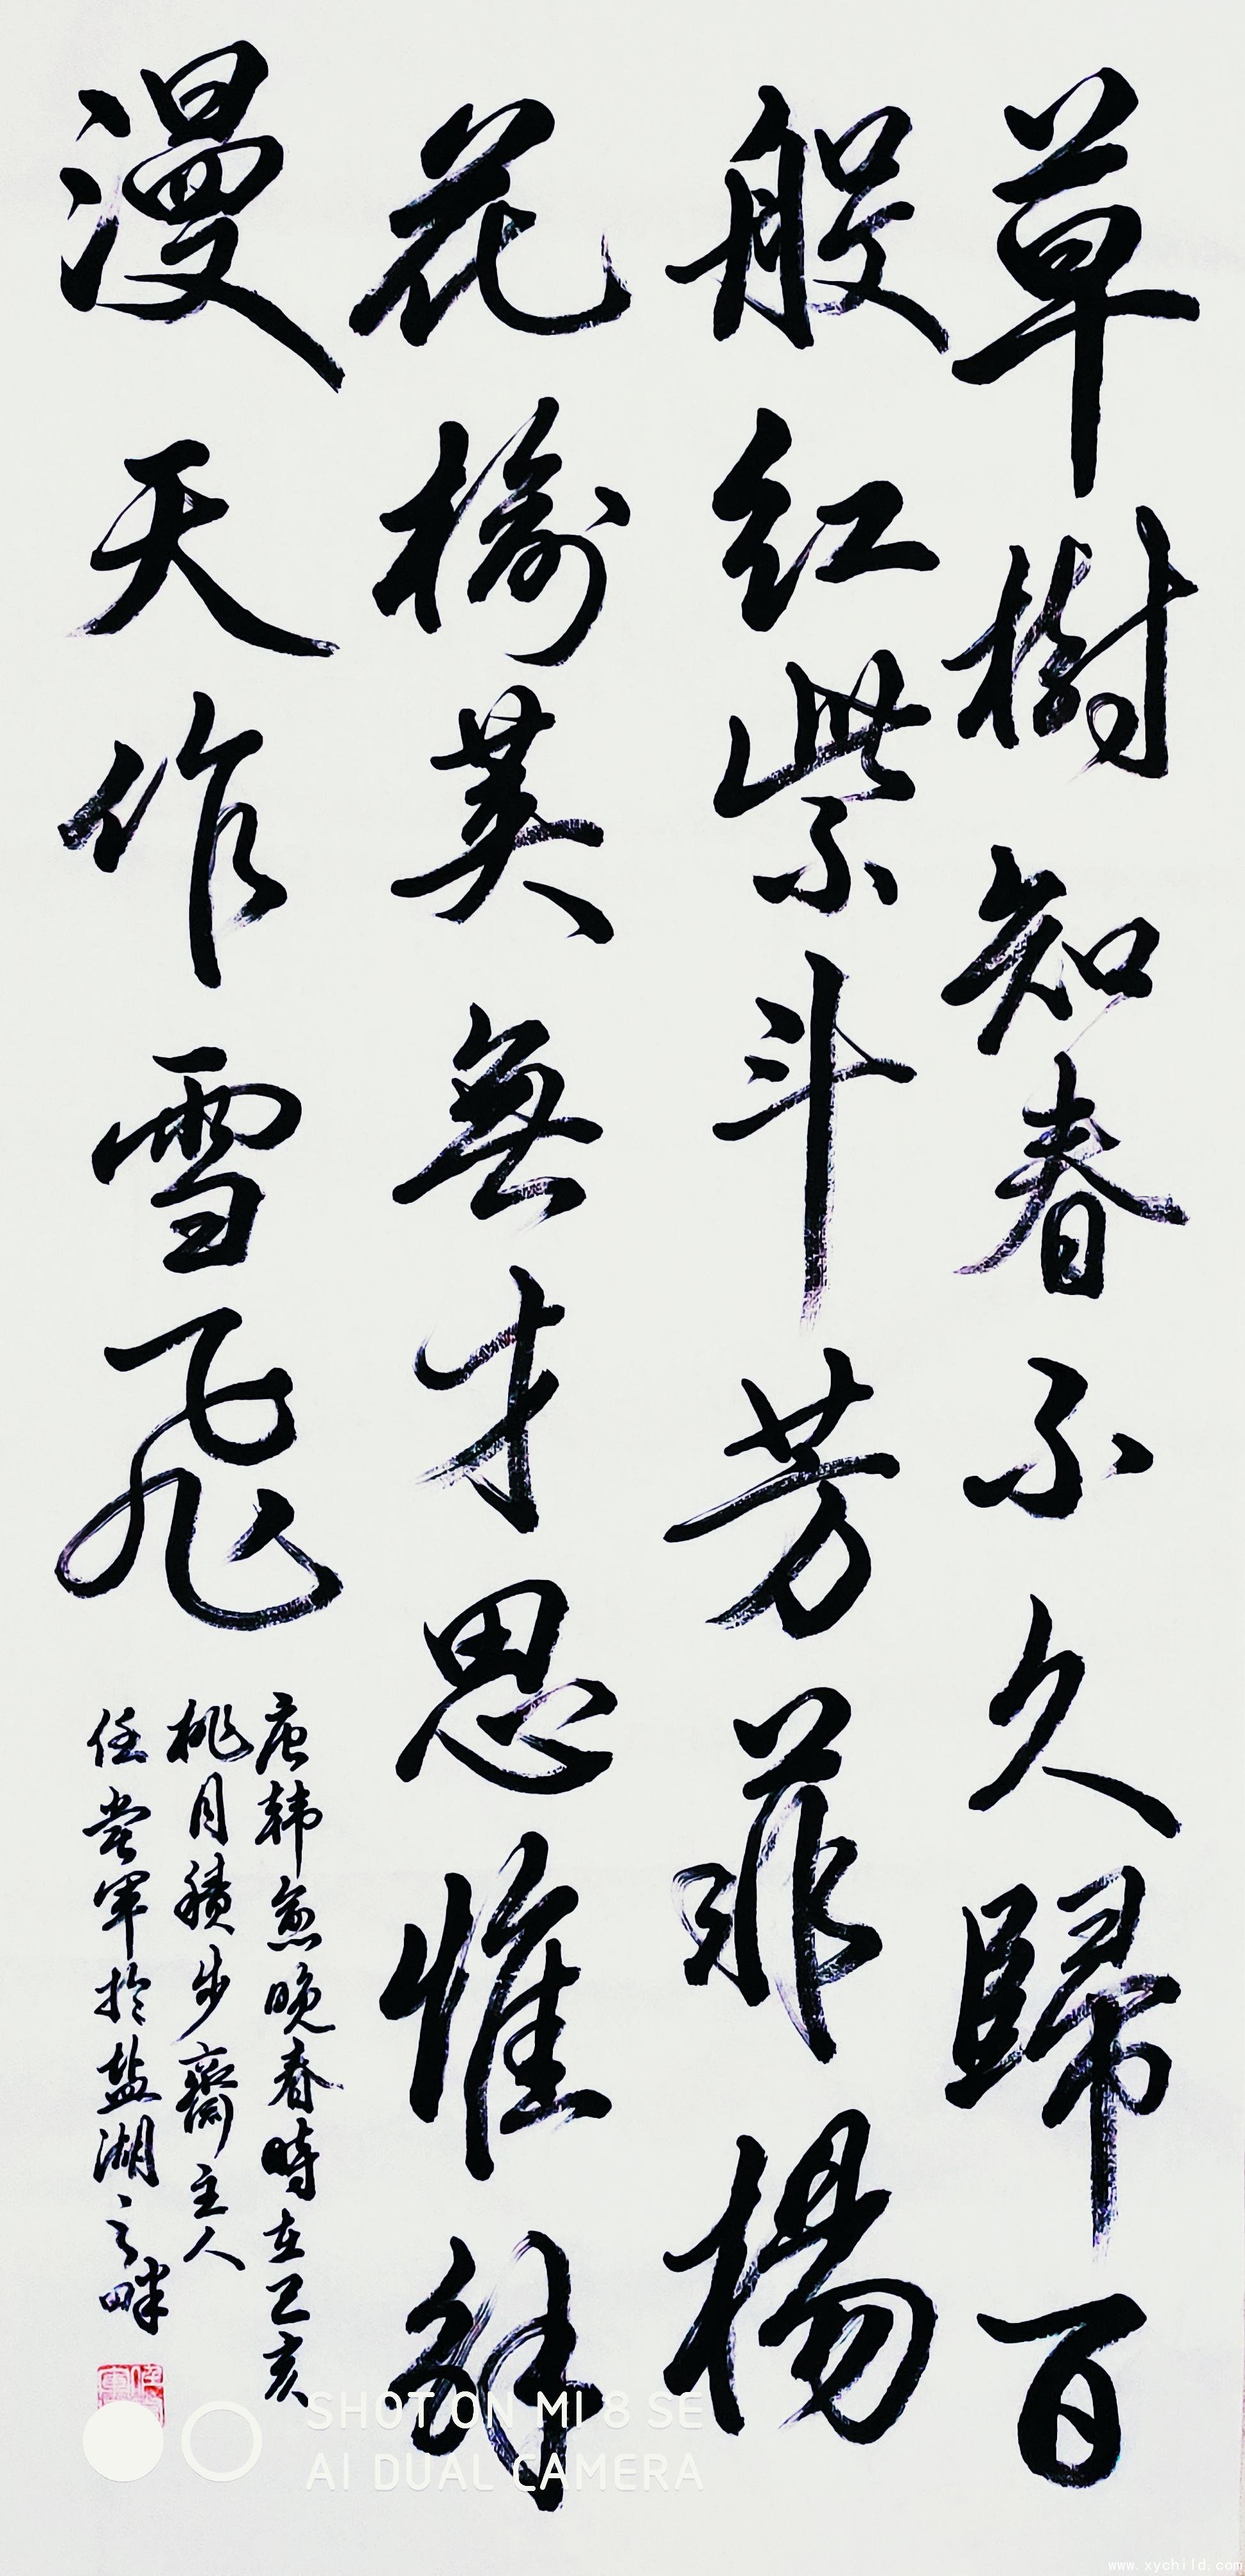 草樹知春不久歸百
般红紫斗芳菲楊
花榆荚無才思惟解
漫天作雪飛
唐韩愈晚春時在己亥
桃月積步齋主人
任軍於盐湖之畔
SHOT ON MI 8 SE
AI DUAL CAMERA
www.xychild.com